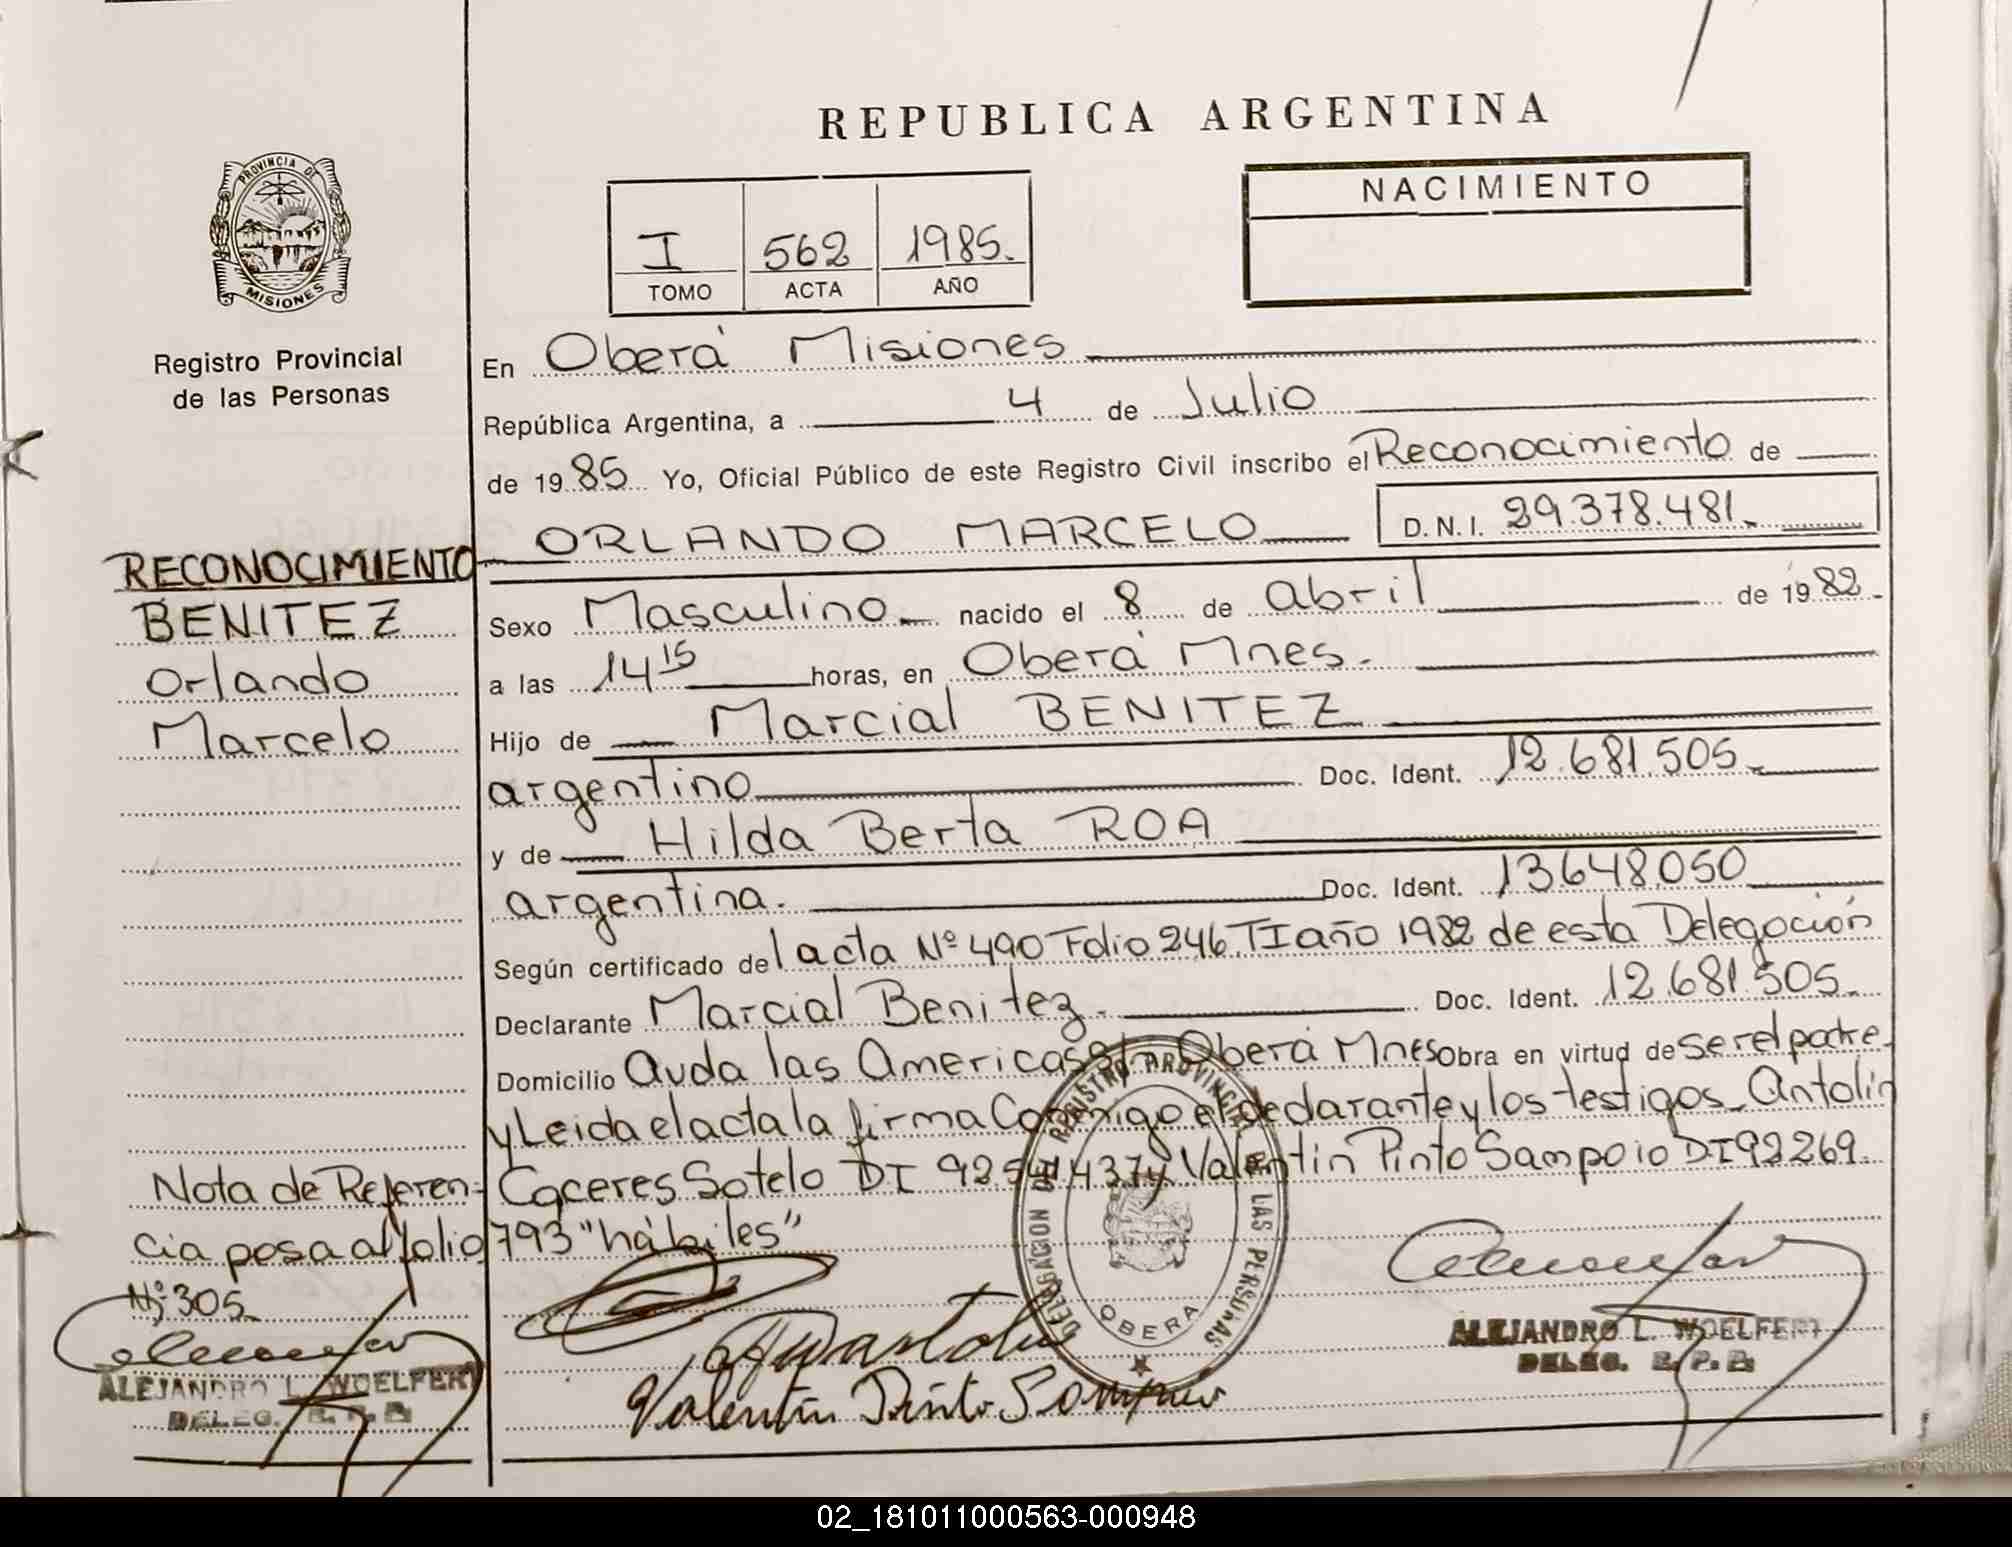 REPUBLICA ARGENTINA
PROVINCIA DE
MISIONES
Registro Provincial
de las Personas
I 562 1985.
TOMO ACTA AÑO
NACIMIENTO
En Oberá Misiones
República Argentina, a 4 de Julio
de 1985 Yo, Oficial Público de este Registro Civil inscribo el Reconocimiento de
ORLANDO MARCELO D.N.I. 29.378.481.
RECONOCIMIENTO
BENITEZ
Orlando
Marcelo
Sexo Masculino nacido el 8 de abril de 1982
a las 14 15 horas, en Oberá Mnes.
Hijo de Marcial BENITEZ
argentino Doc. Ident. 12.681.505.
y de Hilda Berta ROA
argentina. Doc. Ident. 13648050
Según certificado del acta Nº 490 Folio 246 TI año 1982 de esta Delegación
Declarante Marcial Benitez. Doc. Ident. 12.681.505.
Domicilio Avda las Americas s/n Oberá Mnes obra en virtud de ser el padre
y Leida el acta la firma Conmigo el declarante y los testigos Antolin
Caceres Sotelo DI 92544437 y Valentin Pinto Sampoio DI 92269.
Nota de Referen-
cia pasa al folio 793 "hábiles"
Nº 305
DELEGACION DEL REGISTRO PROVINCIAL LAS PERSONAS
OBERA
Valentin Pinto Sampaio
ALEJANDRO L. WOELFERT
DELEG. R. P. P.
ALEJANDRO L. WOELFERT
DELEG. R. P. P.
02_181011000563-000948